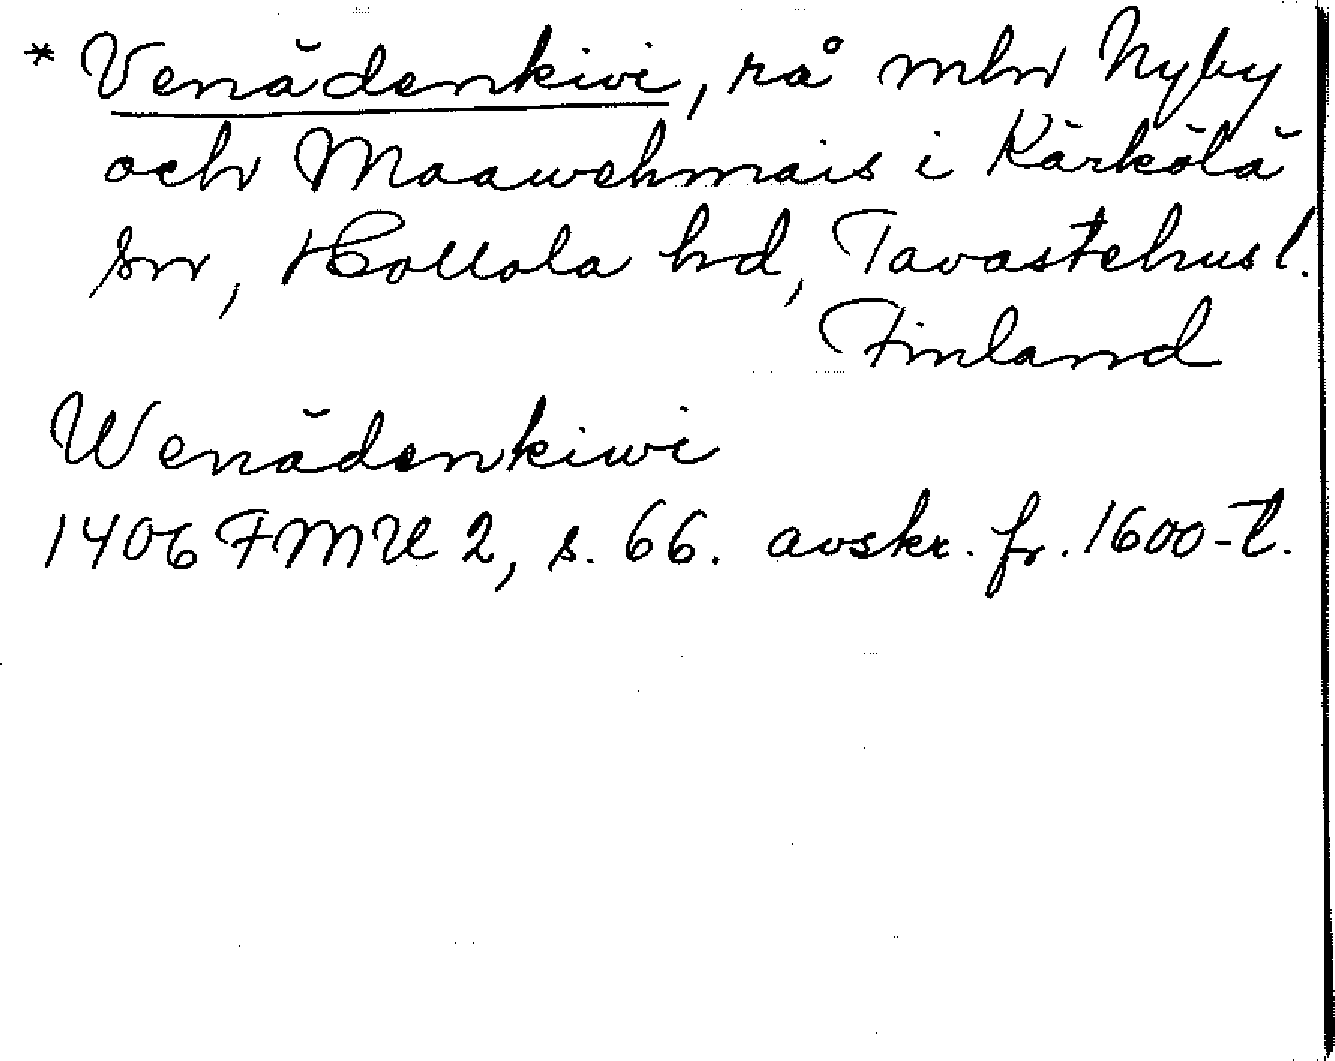 * Venädenkivi, rå mln Nyby
och Maawehmais i Kärkölä
sn, Hollola hd, Tavastehus l.
Finland
Wenädenkiwi
1406 FMU 2, s. 66. avskr. fr. 1600-t.